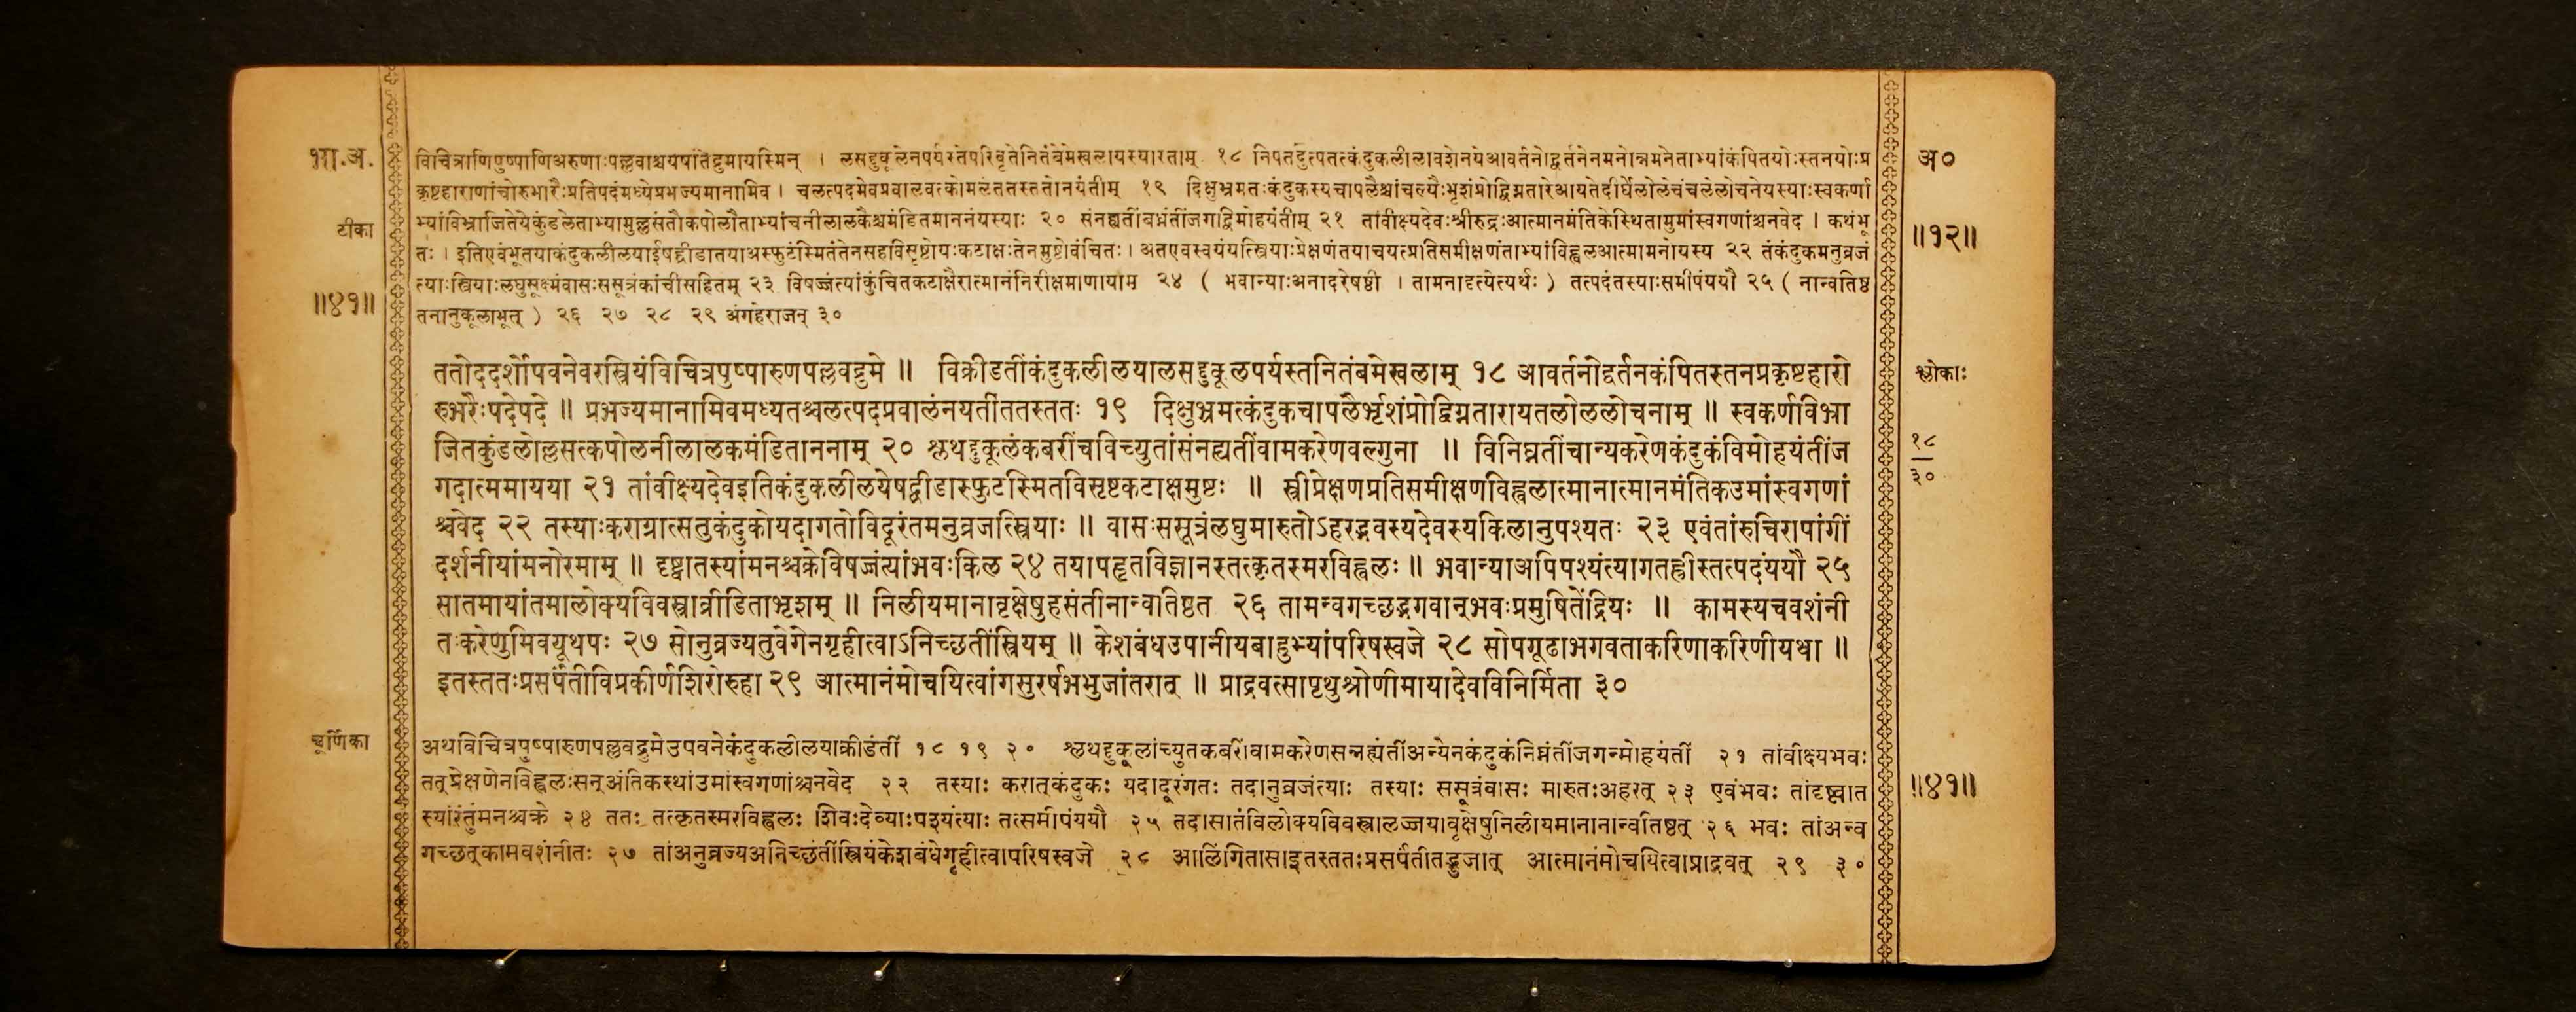 भा.अ.
टीका
॥४१॥
विचित्राणिपुष्पाणिअरुणाःपल्लवाश्चयेषांतेद्रुमायस्मिन् । लसद्दुकूलेनपर्यस्तेपरिवृतेनितंबेमेखलायस्यास्ताम् १८ निपतदुत्पतत्कंदुकलीलावशेनयेआवर्तनोद्वर्तनेनमनोन्नमनेताभ्यांकंपितयोःस्तनयोःप्र
कृष्टहाराणांचोरुभारैःप्रतिपदंमध्येप्रभज्यमानामिव । चलत्पदमेवप्रवालवत्कोमलंततस्ततोनयंतीम् १९ दिक्षुभ्रमतःकंदुकस्यचापलैश्चांचल्यैःभृशंप्रोद्विग्नतारेआयतेदीर्घेलोलेचंचलेलोचनेयस्याःस्वकर्णा
भ्यांविभ्राजितेयेकुंडलेताभ्यामुल्लसंतौकपोलौताभ्यांचनीलालकैश्चमंडितमाननंयस्याः २० संनह्यतींबध्नंतींजगद्विमोहयंतीम् २१ तांवीक्ष्यदेवःश्रीरुद्रःआत्मानमंतिकेस्थितामुमांस्वगणांश्चनवेद । कथंभू
तः । इतिएवंभूतयाकंदुकलीलयाईषद्व्रीडातयाअस्फुटंस्मितंतेनसहविसृष्टोयःकटाक्षःतेनमुष्टोवंचितः । अतएवस्वयंयत्स्त्रियाःप्रेक्षणंतयाचयत्प्रतिसमीक्षणंताभ्यांविह्वलआत्मामनोयस्य २२ तंकंदुकमनुव्रजं
त्याःस्त्रियाःलघुसूक्ष्मंवासःससूत्रंकांचीसहितम् २३ विषज्जंत्यांकुंचितकटाक्षैरात्मानंनिरीक्षमाणायाम् २४ ( भवान्याःअनादरेषष्ठी । तामनादृत्येत्यर्थः ) तत्पदंतस्याःसमीपंययौ २५ ( नान्वतिष्ठ
तनानुकूलाभूत् ) २६ २७ २८ २९ अंगहेराजन् ३०
अ०
॥१२॥
ततोददर्शोपवनेवरस्त्रियंविचित्रपुष्पारुणपल्लवद्रुमे ॥ विक्रीडतींकंदुकलीलयालसद्दुकूलपर्यस्तनितंबमेखलाम् १८ आवर्तनोद्वर्तनकंपितस्तनप्रकृष्टहारो
रुभरैःपदेपदे ॥ प्रभज्यमानामिवमध्यतश्चलत्पदप्रवालंनयतींततस्ततः १९ दिक्षुभ्रमत्कंदुकचापलैर्भृशंप्रोद्विग्नतारायतलोललोचनाम् ॥ स्वकर्णविभ्रा
जितकुंडलोल्लसत्कपोलनीलालकमंडिताननाम् २० श्लथद्दुकूलंकबरींचविच्युतांसंनह्यतींवामकरेणवल्गुना ॥ विनिघ्नतींचान्यकरेणकंदुकंविमोहयंतींज
गदात्ममायया २१ तांवीक्ष्यदेवइतिकंदुकलीलयेषद्व्रीडास्फुटस्मितविसृष्टकटाक्षमुष्टः ॥ स्त्रीप्रेक्षणप्रतिसमीक्षणविह्वलात्मानात्मानमंतिकउमांस्वगणां
श्चवेद २२ तस्याःकराग्रात्सतुकंदुकोयदागतोविदूरंतमनुव्रजत्स्त्रियाः ॥ वासःससूत्रंलघुमारुतोऽहरद्भवस्यदेवस्यकिलानुपश्यतः २३ एवंतांरुचिरापांगीं
दर्शनीयांमनोरमाम् ॥ दृष्ट्वातस्यांमनश्चक्रेविषज्जंत्यांभवःकिल २४ तयापहृतविज्ञानस्तत्कृतस्मरविह्वलः ॥ भवान्याअपिपश्यंत्यागतह्रीस्तत्पदंययौ २५
सातमायांतमालोक्यविवस्त्राव्रीडिताभृशम् ॥ निलीयमानावृक्षेषुहसंतीनान्वतिष्ठत २६ तामन्वगच्छद्भगवान्भवःप्रमुषितेंद्रियः ॥ कामस्यचवशंनी
तःकरेणुमिवयूथपः २७ सोनुव्रज्यतुवेगेनगृहीत्वाऽनिच्छतींस्त्रियम् ॥ केशबंधउपानीयबाहुभ्यांपरिषस्वजे २८ सोपगूढाभगवताकरिणाकरिणीयथा ॥
इतस्ततःप्रसर्पंतीविप्रकीर्णशिरोरुहा २९ आत्मानंमोचयित्वांगसुरर्षभभुजांतरात् ॥ प्राद्रवत्सापृथुश्रोणीमायादेवविनिर्मिता ३०
श्लोकाः
१८
३०
चूर्णिका
अथविचित्रपुष्पारुणपल्लवद्रुमेउपवनेकंदुकलीलयाक्रीडंतीं १८ १९ २० श्लथद्दुकूलांच्युतकबरींवामकरेणसन्नह्यंतींअन्येनकंदुकंनिघ्नंतींजगन्मोहयंतीं २१ तांवीक्ष्यभवः
तत्प्रेक्षणेनविह्वलःसन्अंतिकस्थांउमांस्वगणांश्चनवेद २२ तस्याः करात्कंदुकः यदादूरंगतः तदानुव्रजंत्याः तस्याः ससूत्रंवासः मारुतःअहरत् २३ एवंभवः तांदृष्ट्वात
स्यांरंतुंमनश्चक्रे २४ ततः तत्कृतस्मरविह्वलः शिवःदेव्याःपश्यंत्याः तत्समीपंययौ २५ तदासातंविलोक्यविवस्त्रालज्जयावृक्षेषुनिलीयमानानान्वतिष्ठत् २६ भवः तांअन्व
गच्छत्कामवशंनीतः २७ तांअनुव्रज्यअनिच्छंतींस्त्रियंकेशबंधेगृहीत्वापरिषस्वजे २८ आलिंगितासाइतस्ततःप्रसर्पंतीतद्भुजात् आत्मानंमोचयित्वाप्राद्रवत् २९ ३०
॥४१॥